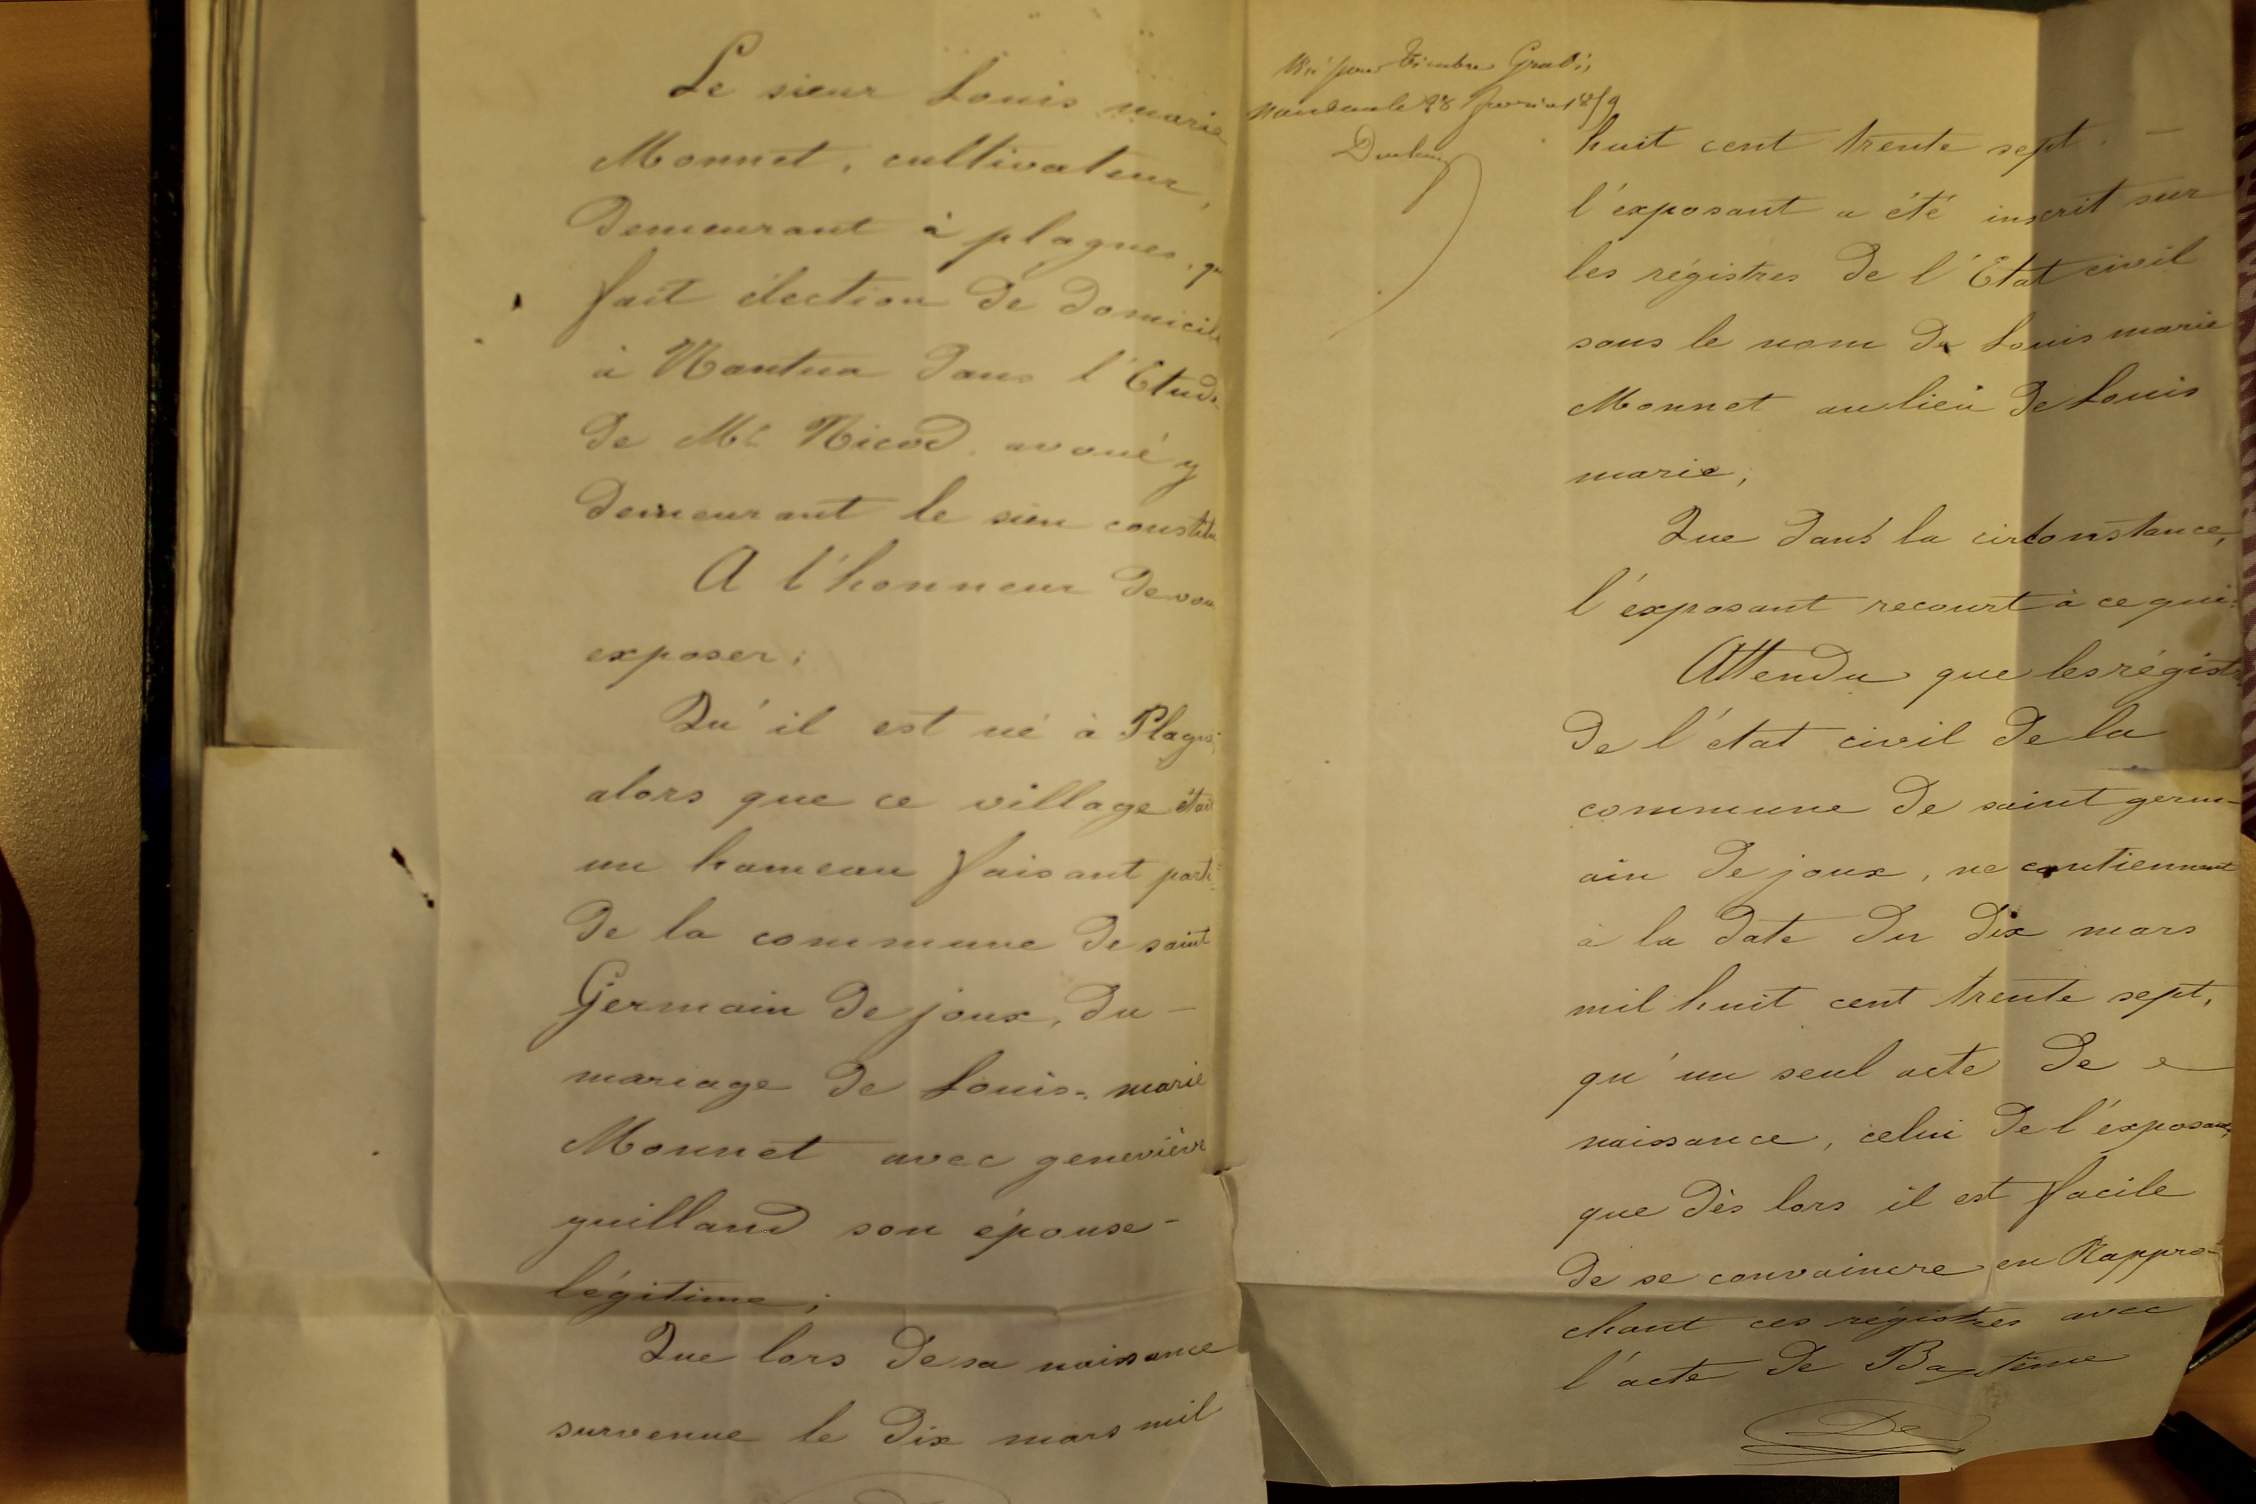 Le sieur Louis marie
Monnet, cultivateur,
Demeurant à plagnes, qui
fait élection de domicile
à Nantua dans l'Etude
de Me Nicod, avoué y
demeurant le sien constitué
A l'honneur de vous
exposer;
Qu'il est né à Plagnes
alors que ce village était
un hameau faisant partie
de la commune de saint
Germain de joux, du -
mariage de Louis-marie
Monnet avec geneviève
guilland son épouse -
légitime;
Que lors de sa naissance
survenue le dix mars mil
Visé pour timbre Gratis
Nantua le 28 février 18
huit cent trente sept. -
l'exposant a été inscrit sur
les régistres de l'Etat civil
sous le nom de Louis marie
Monnet au lieu de Louis
marie,
Que dans la circonstance,
l'exposant recourt à ce qui:
Attendu que les régistres
de l'état civil de la
commune de saint germ-
ain de joux, ne contiennent
à la date du dix mars
mil huit cent trente sept,
qu'un seul acte de
naissance, celui de l'exposant,
que dès lors il est facile
de se convaincre en Rappro-
chant ces régistres avec
l'acte de Baptême
De